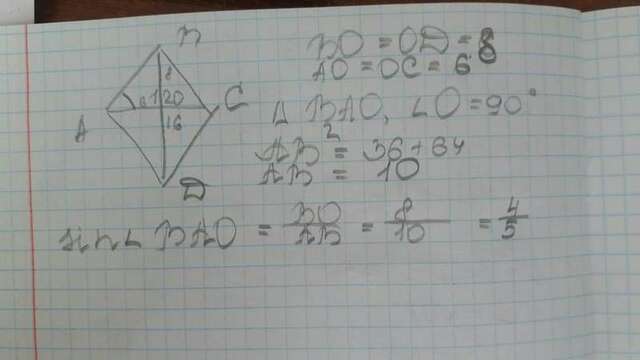 B
8
6 12 O
C
A
16
D
BO = OD = 8
AO = OC = 6
Δ BAO, ∠O = 90°
AB² = 36 + 64
AB = 10
sin∠ BAO = BO/AB = 8/10 = 4/5